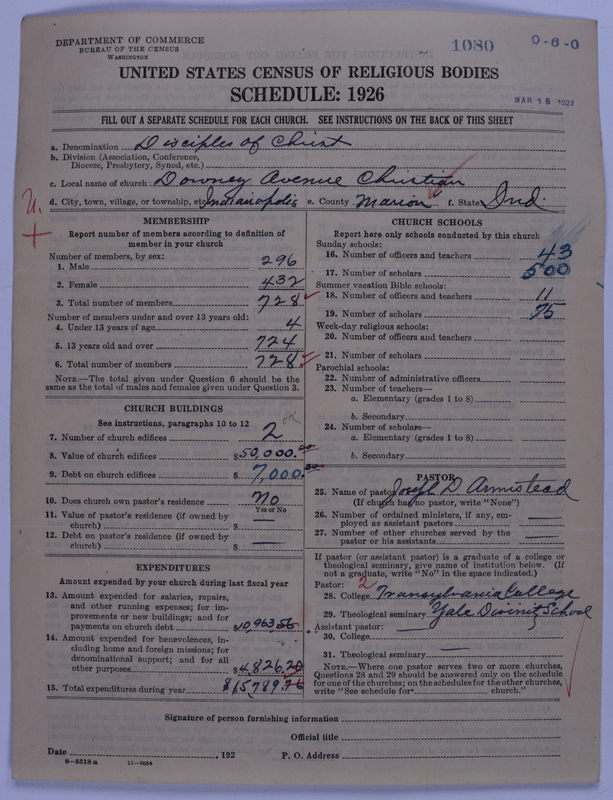 DEPARTMENT OF COMMERCE
BUREAU OF THE CENSUS
WASHINGTON
1080
0-6-0
UNITED STATES CENSUS OF RELIGIOUS BODIES
SCHEDULE: 1926
MAR 18 1927
FILL OUT A SEPARATE SCHEDULE FOR EACH CHURCH. SEE INSTRUCTIONS ON THE BACK OF THIS SHEET
a. Denomination Disciples of Christ
b. Division (Association, Conference,
Diocese, Presbytery, Synod, etc.)
c. Local name of church Downey Avenue Christian
d. City, town, village, or township, etc. Indianapolis e. County Marion f. State Ind.
MEMBERSHIP
Report number of members according to definition of
member in your church
Number of members, by sex:
1. Male 296
2. Female 432
3. Total number of members 728
Number of members under and over 13 years old:
4. Under 13 years of age 4
5. 13 years old and over 724
6. Total number of members 728
NOTE.—The total given under Question 6 should be
the same as the total of males and females given under Question 3.
CHURCH BUILDINGS
See instructions, paragraphs 10 to 12
7. Number of church edifices 2
8. Value of church edifices $50,000.00
9. Debt on church edifices $7,000.00
10. Does church own pastor's residence no
Yes or No
11. Value of pastor's residence (if owned by
church) $ —
12. Debt on pastor's residence (if owned by
church) $ —
EXPENDITURES
Amount expended by your church during last fiscal year
13. Amount expended for salaries, repairs,
and other running expenses; for im-
provements or new buildings; and for
payments on church debt $10,963.56
14. Amount expended for benevolences, in-
cluding home and foreign missions; for
denominational support; and for all
other purposes $4,826.20
15. Total expenditures during year $15,789.76
CHURCH SCHOOLS
Report here only schools conducted by this church
Sunday schools:
16. Number of officers and teachers 43
17. Number of scholars 500
Summer vacation Bible schools:
18. Number of officers and teachers 11
19. Number of scholars 75
Week-day religious schools:
20. Number of officers and teachers
21. Number of scholars
Parochial schools:
22. Number of administrative officers
23. Number of teachers—
a. Elementary (grades 1 to 8)
b. Secondary
24. Number of scholars—
a. Elementary (grades 1 to 8)
b. Secondary
PASTOR
25. Name of pastor Joseph D Armistead
(If church has no pastor, write "None")
26. Number of ordained ministers, if any, em-
ployed as assistant pastors —
27. Number of other churches served by the
pastor or his assistants —
If pastor (or assistant pastor) is a graduate of a college or
theological seminary, give name of institution below. (If
not a graduate, write "No" in the space indicated.)
Pastor: 2
28. College Transylvania College
29. Theological seminary Yale Divinity School
Assistant pastor:
30. College —
31. Theological seminary
NOTE.—Where one pastor serves two or more churches,
Questions 28 and 29 should be answered only on the schedule
for one of the churches; on the schedules for the other churches,
write "See schedule for church."
Signature of person furnishing information
Official title
Date , 192 P. O. Address
8—5518 a 11—9084